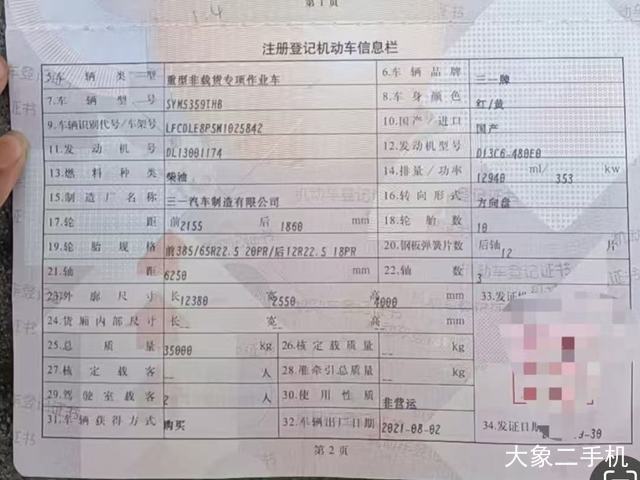 第1页
1.4
注册登记机动车信息栏
5.车辆类型 重型非载货专项作业车 6.车辆品牌 三一牌
7.车辆型号 SYM5359THB 8.车身颜色 红/黄
9.车辆识别代号/车架号 LFCDLE8P5M1025842 10.国产/进口 国产
11.发动机号 DL13001174 12.发动机型号 D13C6-480E0
13.燃料种类 柴油 14.排量/功率 12940 ml/ 353 kw
15.制造厂名称 三一汽车制造有限公司 16.转向形式 方向盘
17.轮距 前2155 后1860 mm 18.轮胎数 10
19.轮胎规格 前385/65R22.5 20PR/后12R22.5 18PR 20.钢板弹簧片数 后轴12 片
21.轴距 6250 mm 22.轴数 3
23.外廓尺寸 长12380 宽2550 高4000 mm 33.发证机
24.货厢内部尺寸 长-- 宽-- 高-- mm
25.总质量 35000 kg 26.核定载质量 -- kg
27.核定载客 -- 人 28.准牵引总质量 -- kg
29.驾驶室载客 2 人 30.使用性质 非营运
31.车辆获得方式 购买 32.车辆出厂日期 2021-08-02 34.发证日期 -30
第2页
大象二手机